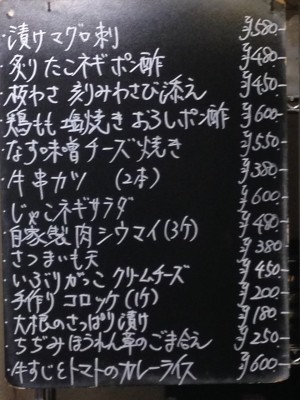 ・漬けマグロ刺 ¥580-
・炙りたこネギポン酢 ¥480-
・板わさ 刻みわさび添え ¥450-
・鶏もも塩焼き おろしポン酢 ¥600-
・なす味噌チーズ焼き ¥550-
・牛串カツ (2本) ¥380-
・じゃこネギサラダ ¥600-
・自家製肉シウマイ(3ケ) ¥480-
・さつまいも天 ¥380-
・いぶりがっこ クリームチーズ ¥450-
・手作りコロッケ(1ケ) ¥200-
・大根のさっぱり漬け ¥180-
・ちぢみほうれん草のごま合え ¥250-
・牛すじとトマトのカレーライス ¥600-